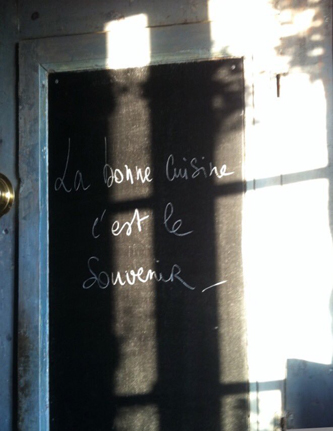 La bonne Cuisine
c'est le
Souvenir_